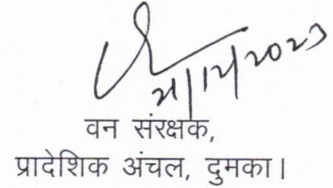 21/12/2023
वन संरक्षक,
प्रादेशिक अंचल, दुमका।